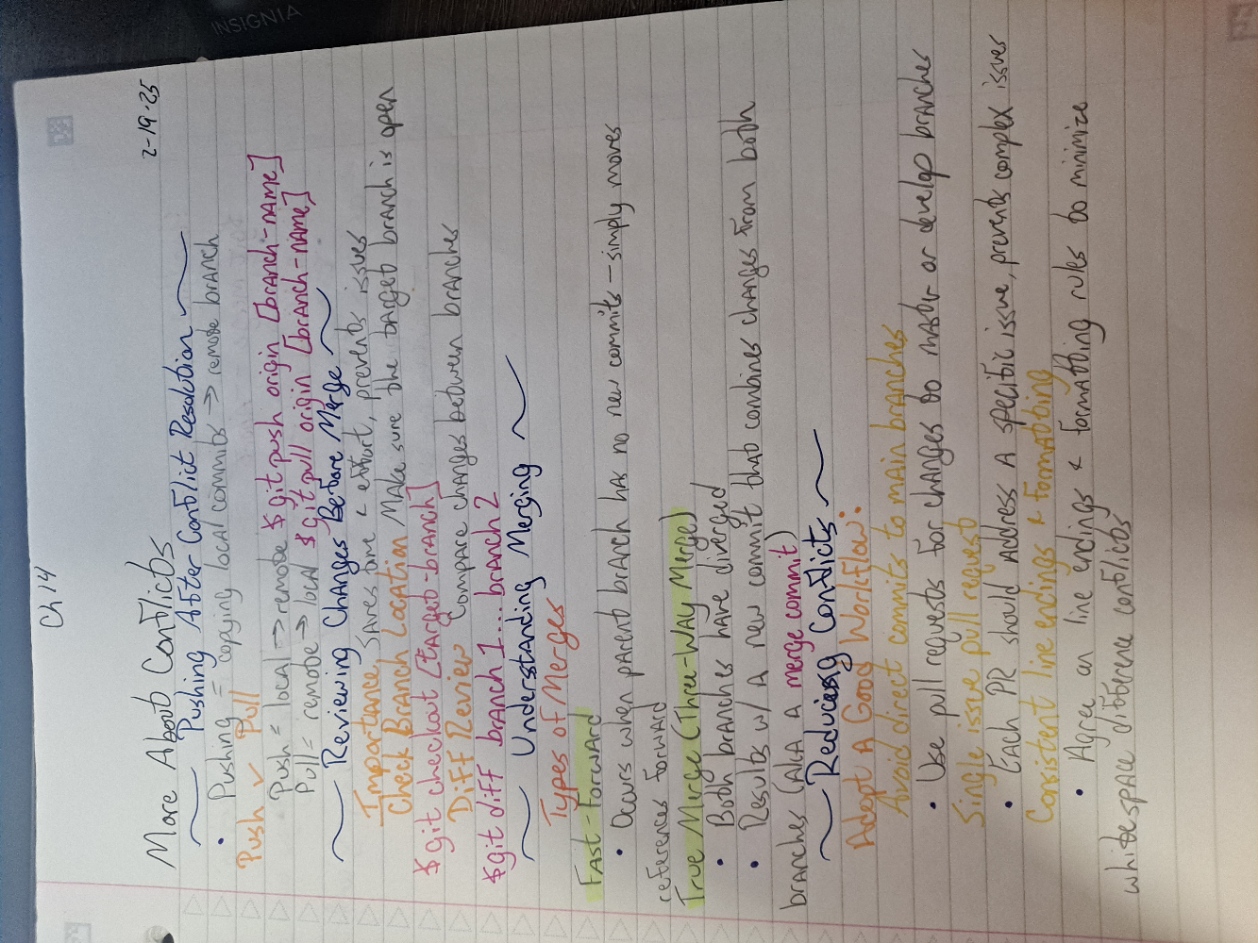 Ch 14
2-19-25
More About Conflicts
Pushing After Conflict Resolution
• Pushing = copying local commits → remote branch
Push v Pull
Push = local → remote $ git push origin [branch-name]
Pull = remote → local $ git pull origin [branch-name]
Reviewing Changes Before Merge
Importance, saves time & effort, prevents issues
Check Branch Location Make sure the target branch is open
$ git checkout [target-branch]
Diff Review Compare changes between branches
$ git diff branch 1... branch 2
Understanding Merging
Types of Merges
Fast-Forward
• Occurs when parent branch has no new commits – simply moves
references forward
True Merge (Three-Way Merge)
• Both branches have diverged
• Results w/ a new commit that combines changes from both
branches (AKA a merge commit)
Reducing Conflicts
Adopt a Good Workflow:
Avoid direct commits to main branches
• Use pull requests for changes to master or develop branches
Single issue pull request
• Each PR should address a specific issue, prevents complex issues
Consistent line endings & formatting
• Agree on line endings & formatting rules to minimize
whitespace difference conflicts
INSIGNIA